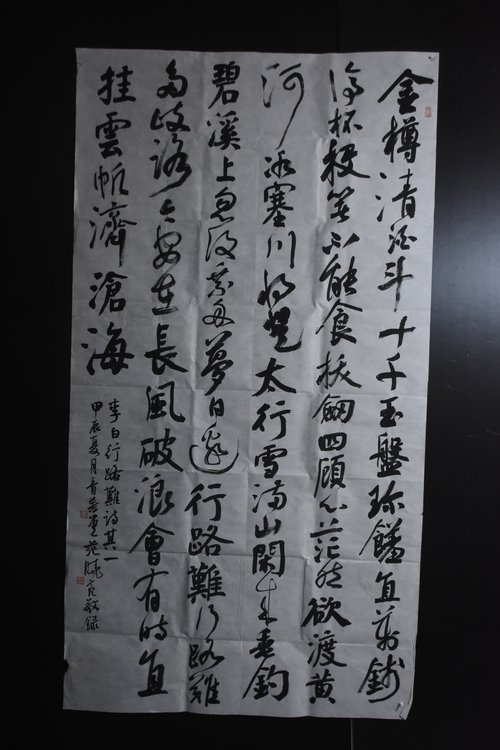 金樽清酒斗十千玉盤珍饈直萬錢
停杯投箸不能食拔劒四顧心茫然欲渡黃
河冰塞川將登太行雪滿山閑來垂釣
碧溪上忽復乘舟夢日邊行路難行路難
多歧路今安在長風破浪會有時直
挂雲帆濟滄海
李白行路難詩其一
甲辰夏月青堂范敬録